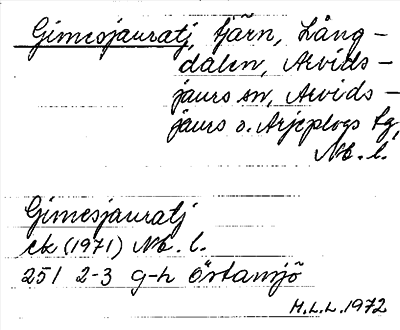 Gimesjauratj, tjärn, Lång-
dalen, Arvids-
jaurs sn, Arvids-
jaurs o. Arjeplogs tg,
Nb. l.
Gimesjauratj
ek (1971) Nb. l.
25 I 2-3 g-h Östansjö
M.L.L. 1972